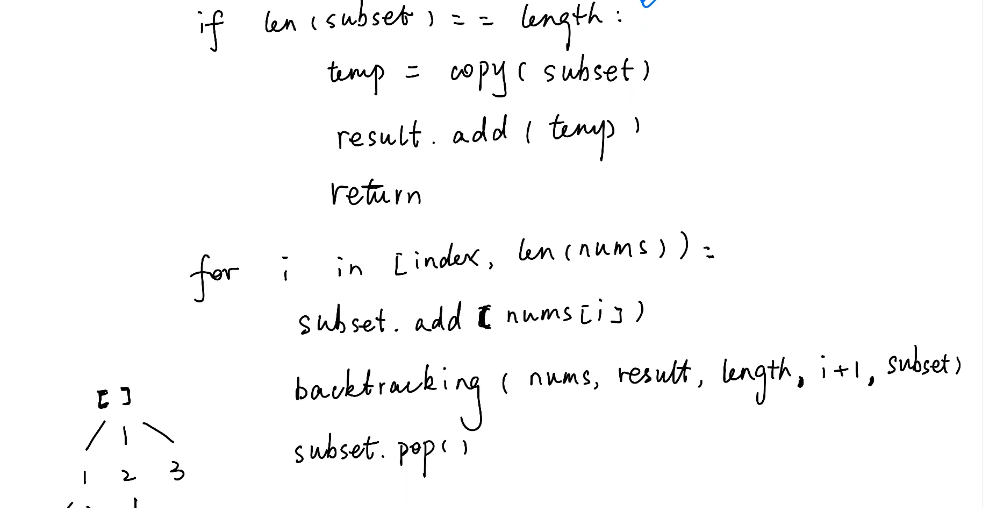 if len(subset) == length:
temp = copy(subset)
result.add(temp)
return
for i in [index, len(nums)):
subset.add(nums[i])
backtracking(nums, result, length, i+1, subset)
subset.pop()
[]
1 2 3